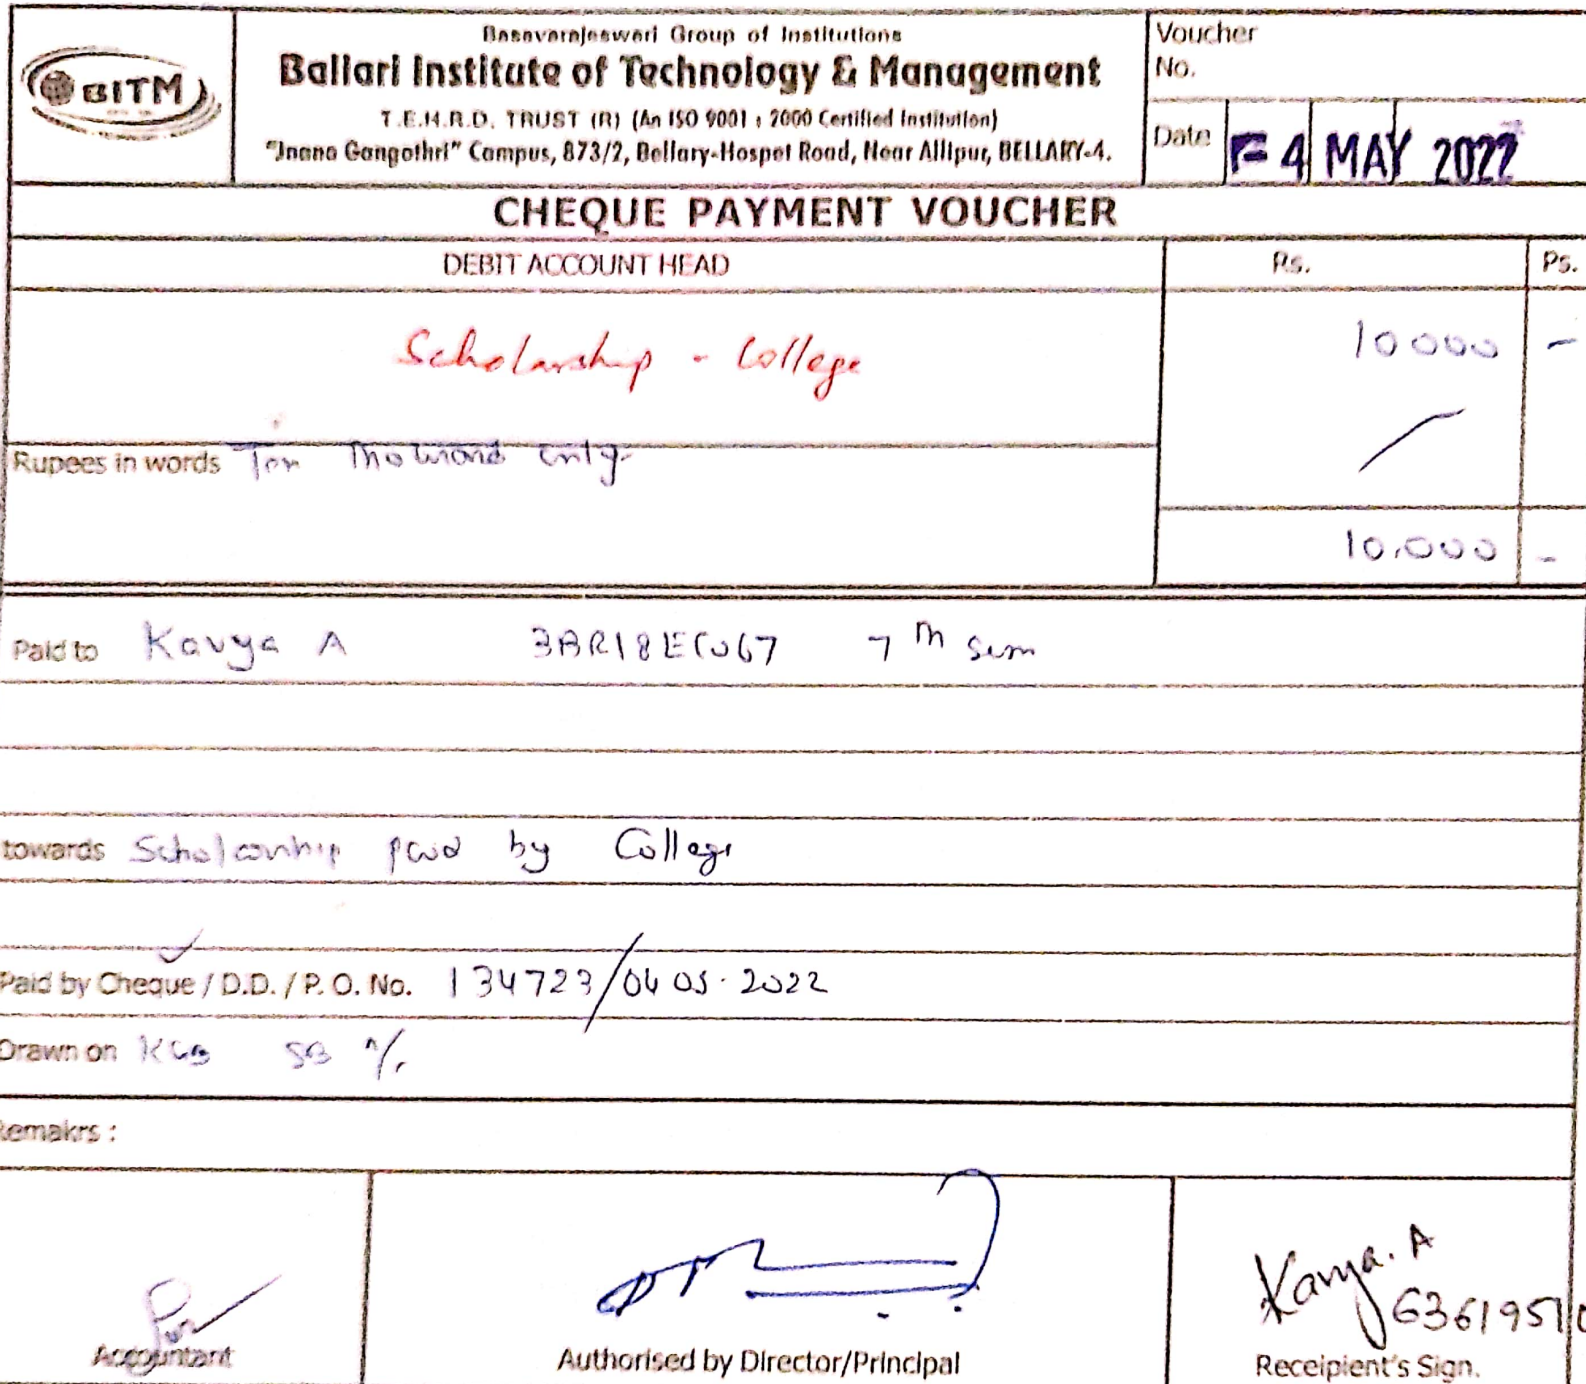 BITM
Basavarajeswari Group of Institutions
Ballari Institute of Technology & Management
T.E.H.R.D. TRUST (R) (An ISO 9001 : 2000 Certified Institution)
"Jnana Gangothri" Campus, 873/2, Bellary-Hospet Road, Near Allipur, BELLARY-4.
Voucher
No.
Date 4 MAY 2022
CHEQUE PAYMENT VOUCHER
DEBIT ACCOUNT HEAD Rs. Ps.
Scholarship - College 10000 -
Rupees in words Ten Thousand only
10,000 -
Paid to Kavya A 3BR18EC067 7th Sem
towards Scholarship paid by College
Paid by Cheque / D.D. / P. O. No. 134723/04 05.2022
Drawn on KGB SB A/c
Remakrs :
Kavya. A
6361951
Accountant
Authorised by Director/Principal
Receipient's Sign.